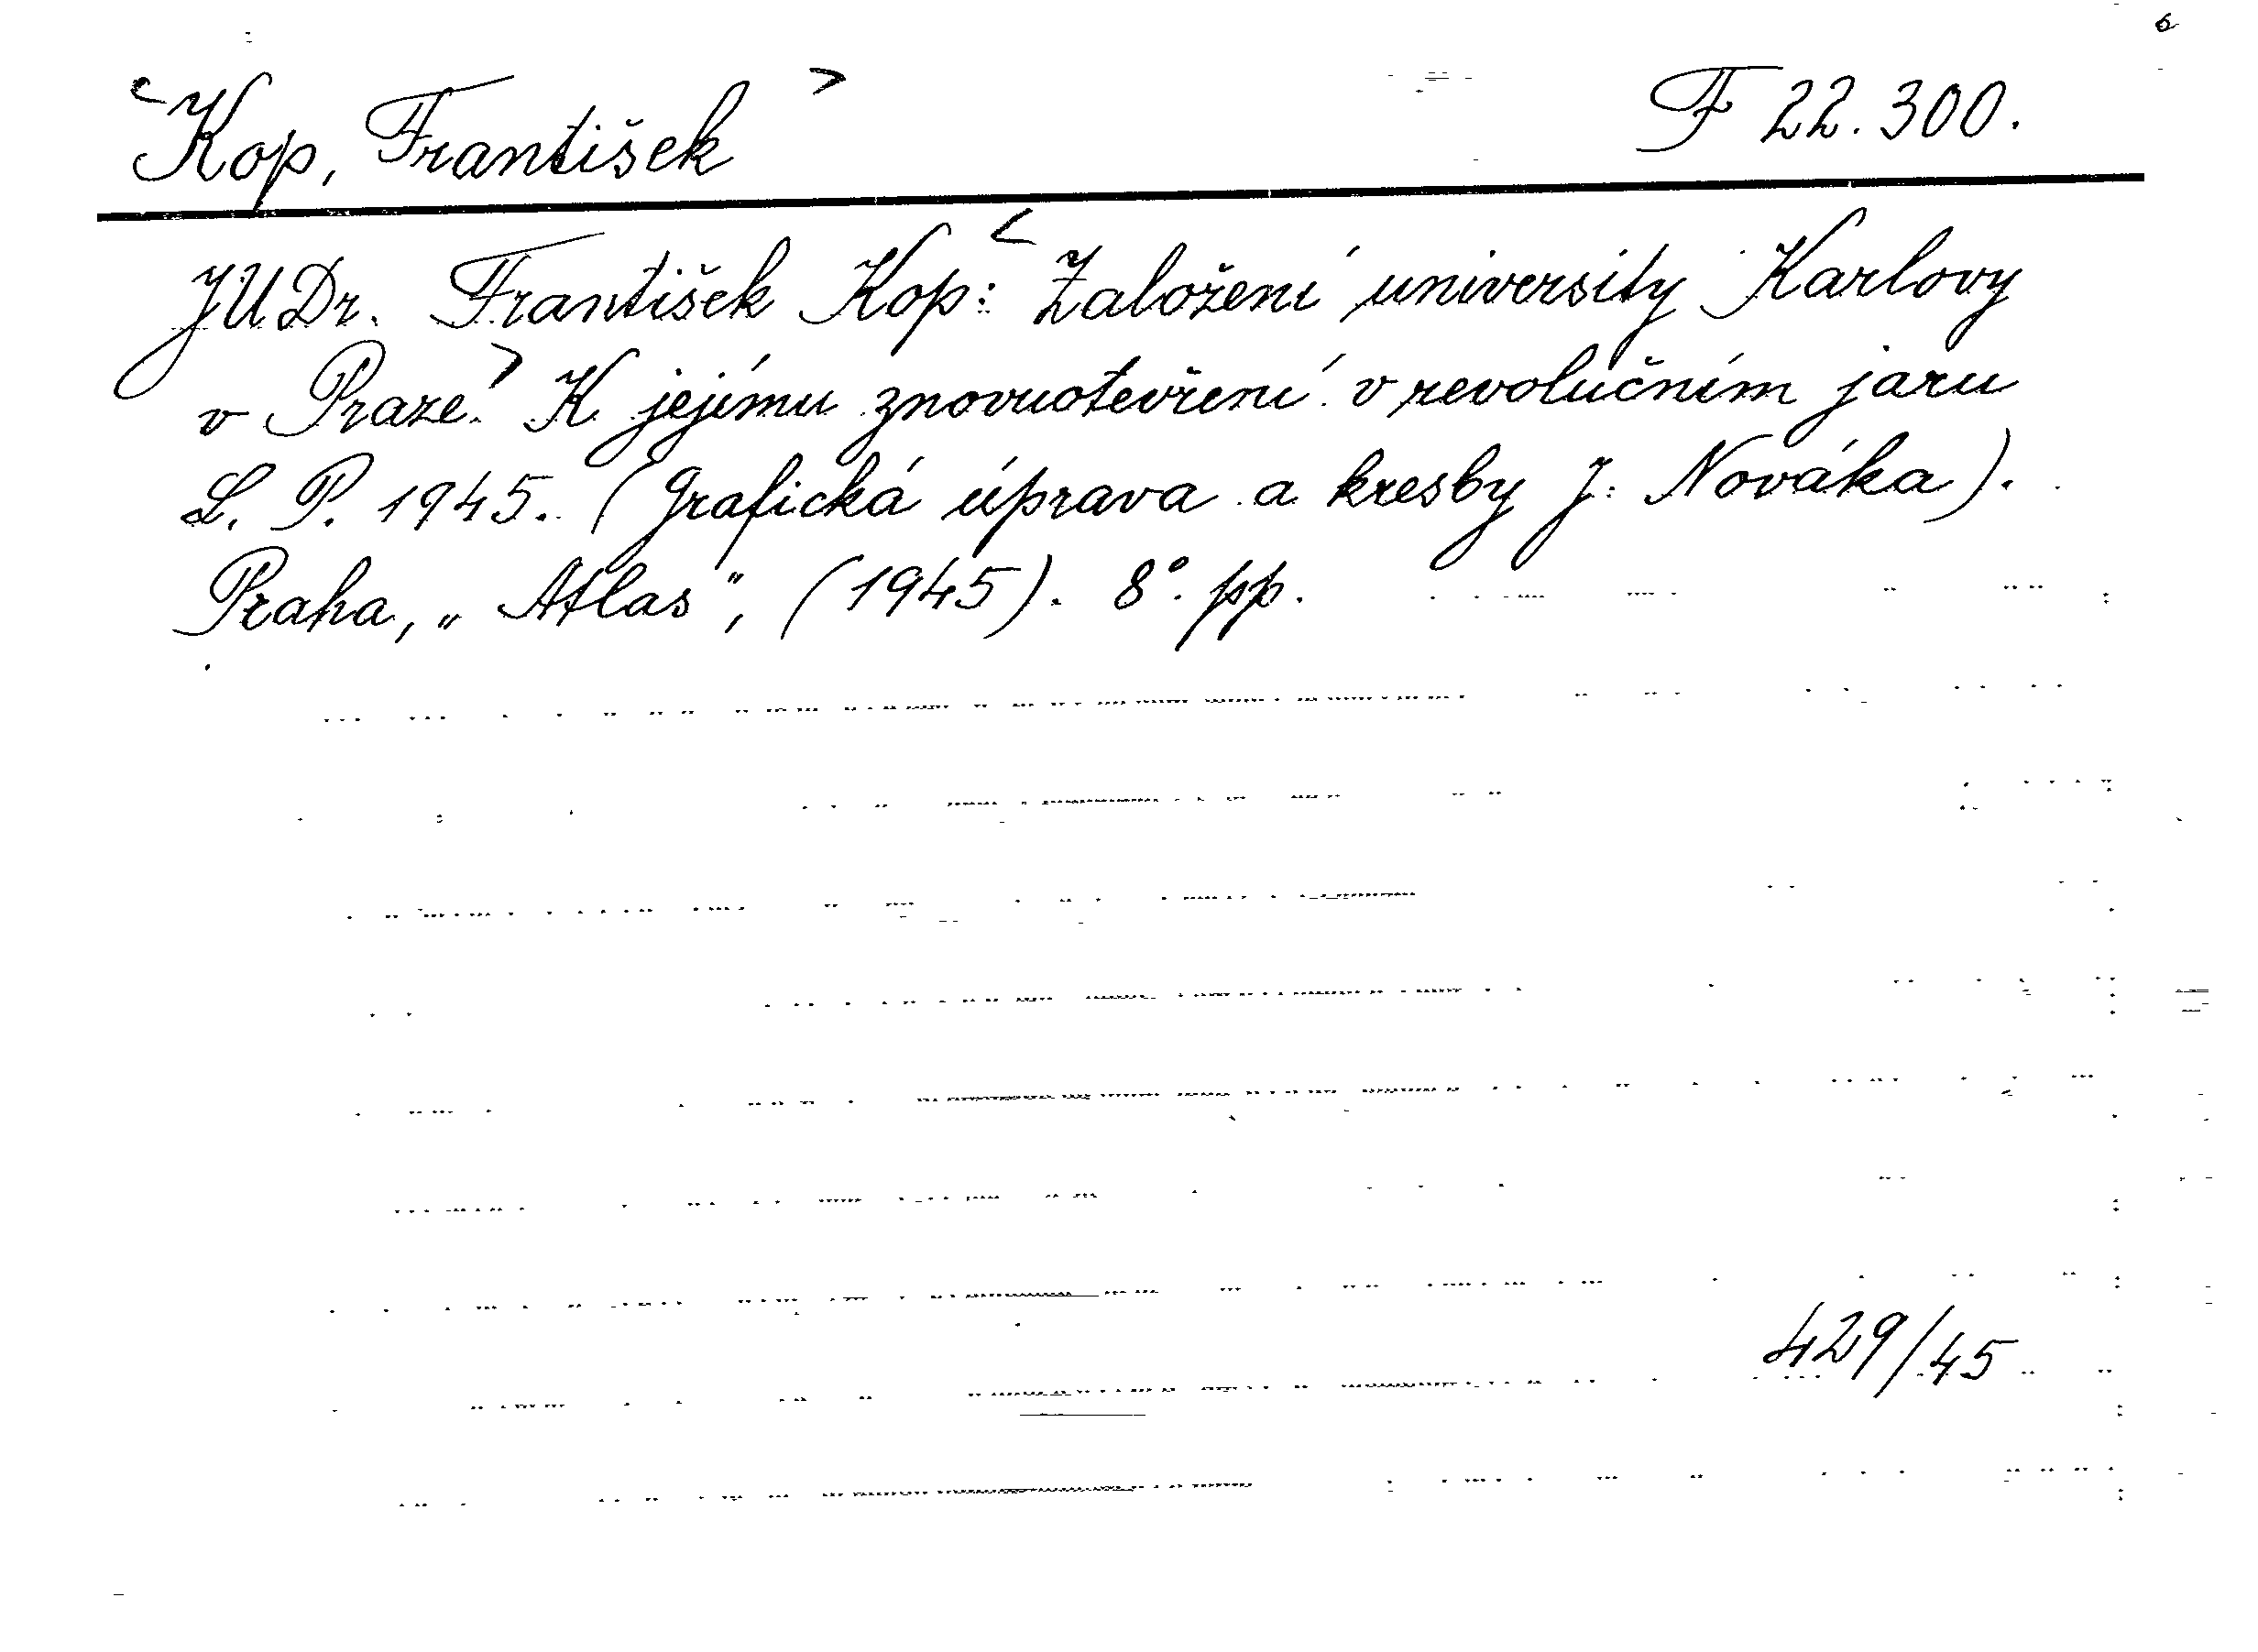 6
<Kop, František> F 22.300.
JUDr. František Kop: <Založení university Karlovy
v Praze.> K jejímu znovuotevření v revolučním jaru
L. P. 1945. (Grafická úprava a kresby J. Nováka).
Praha, „Atlas", (1945). 8°. pp.
429/45